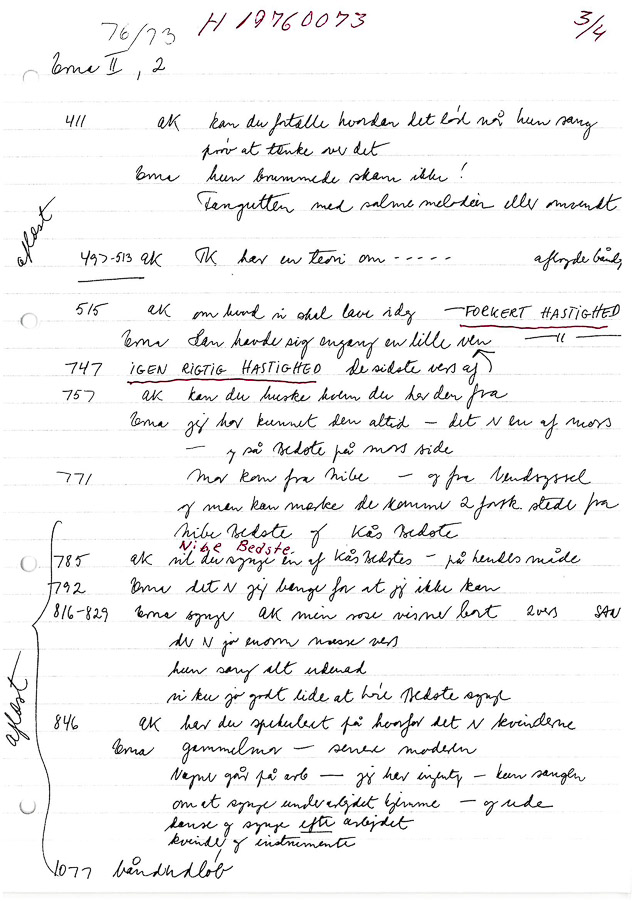 76/73 H 19760073 3/4
Erna II, 2
411 AK kan du fortælle hvordan det lød når hun sang
prøv at tænke over det
Erna hun brummede skam ikke!
Tangutten med salmemelodien eller omvendt
aflæst
497-513 AK TK har en teori om ----- afbryder bånd
515 AK om hvad vi skal lave idag — FORKERT HASTIGHED
Erna Han havde sig engang en lille ven — 11 —
747 IGEN RIGTIG HASTIGHED De sidste vers af
757 AK kan du huske hvem du har den fra
Erna jeg har kunnet den altid — det er en af mors
— og så Bedste på mors side
771 Mor kom fra Nibe — og fra Vendsyssel
og man kan mærke de kommer 2 forsk. steder fra
Nibe Bedste og Kås Bedste
Nibe Bedste
785 AK vil du synge en af Kås Bedstes — på hendes måde
792 Erna det er jeg bange for at jeg ikke kan
816-829 Erna synger AK min rose visner bort 2 vers SAN
der er jo enorm masse vers
hun sang alt udenad
vi ku jo godt lide at høre Bedste synge
aflæst
846 AK har du spekuleret på hvorfor det er kvinderne
Erna gammelmor — senere moderen
går på arb — jeg har — kun sangen
om at synge under arbejdet hjemme — og ude
danse og synge efter arbejdet
kvinder og instrumenter
1077 båndudløb